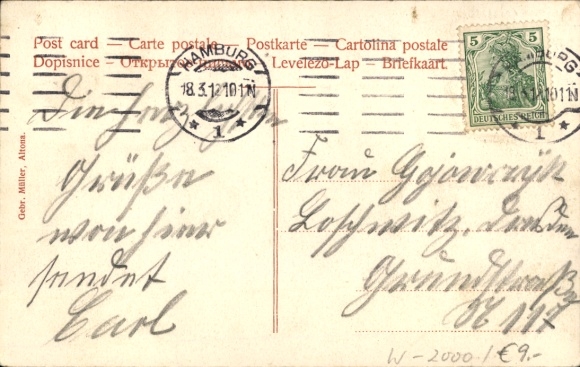 Post card — Carte postale — Postkarte — Cartolina postale
Dopisnice — Открытое — Levelezö-Lap — Briefkaart
HAMBURG
18.3.12 10-11N
* 1 *
5 5
DEUTSCHES REICH
Gebr. Müller, Altona.
Die herzlichsten
Grüße
von hier
sendet
Carl
Frau
Loschwitz, Dresden
Grundstraße
N 117
W-2000 / €9.-